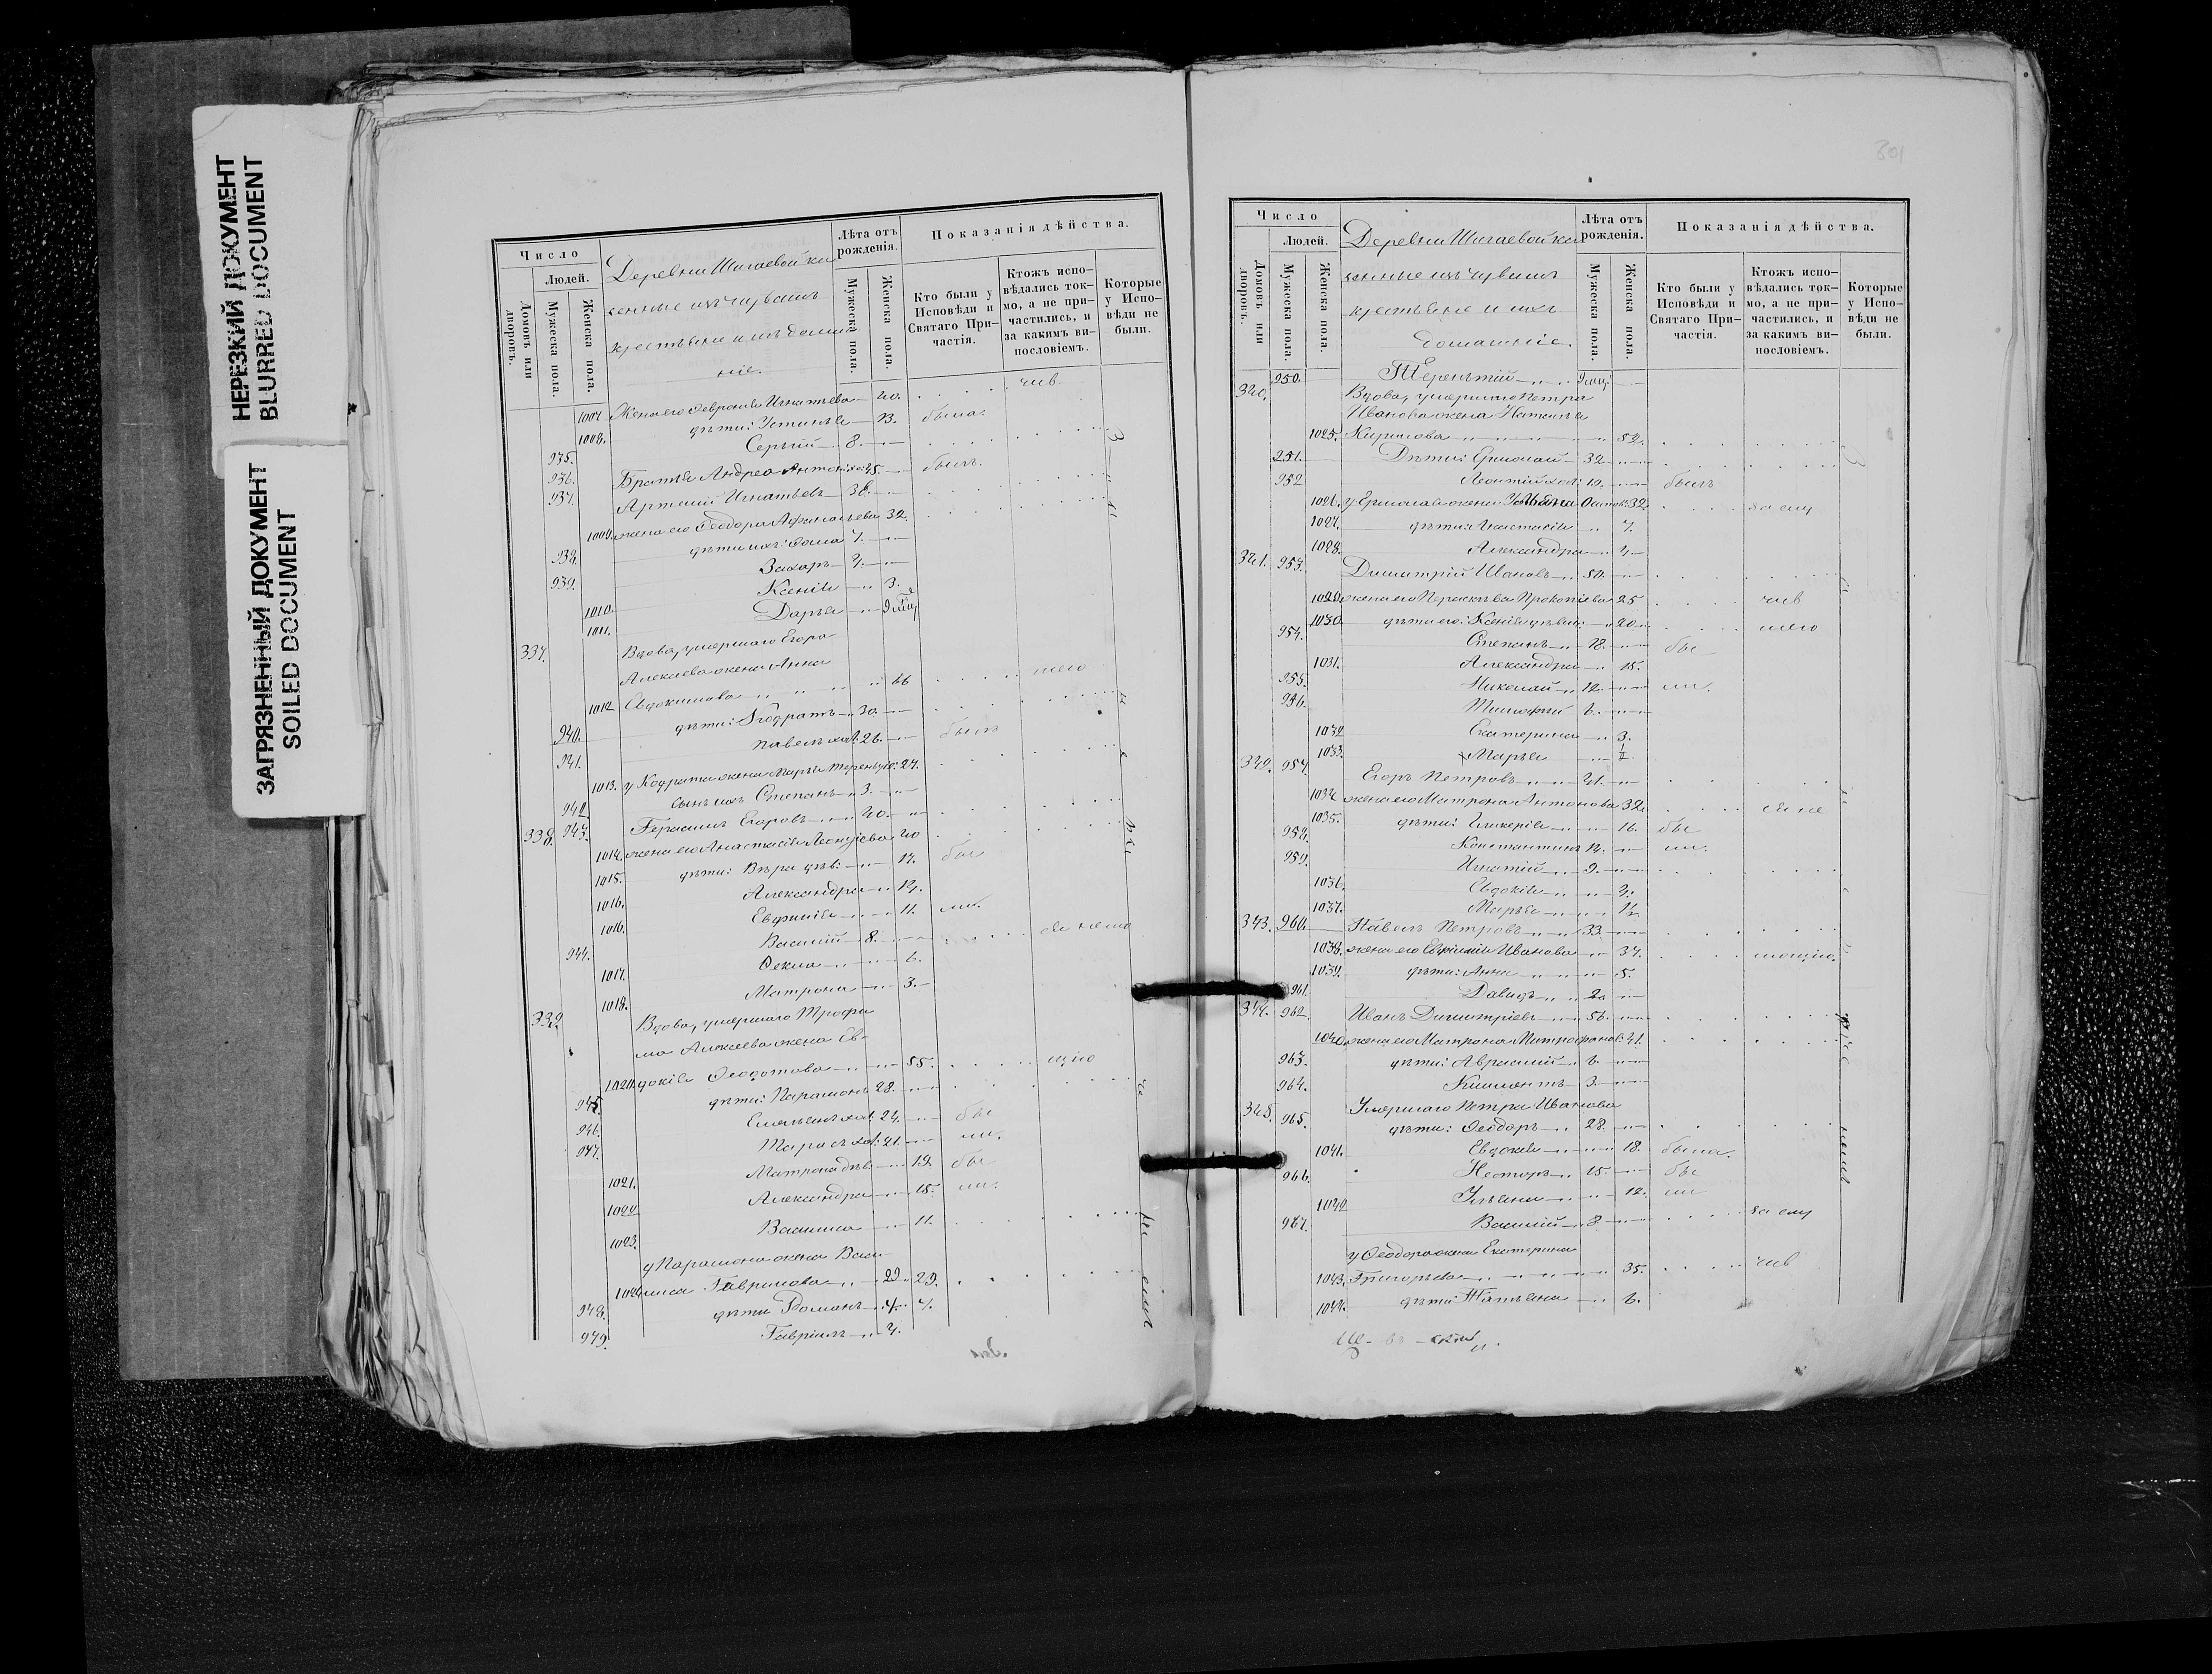 НЕРЕЗКИЙ ДОКУМЕНТ
BLURRED DOCUMENT
ЗАГРЯЗНЕННЫЙ ДОКУМЕНТ
SOILED DOCUMENT
Число
Людей.
Домовъ или дворовъ.
Мужеска пола.
Женска пола.
Деревни Шигаевой ка
зенные изъ чувашъ
крестьяне и ихъ домаш
ніе.
Лѣта отъ рожденія.
Мужеска пола.
Женска пола.
Показанія дѣйства.
Кто были у Исповѣди и Святаго Причастія.
Ктожъ исповѣдались токмо, а не причастились, и за какимъ винословіемъ.
Которые у Исповѣди не были.
1007. Жена его Февронія Игнатьева 40.
1008. дѣти: Устинья 13. была.
935. Сергій 8.
936. Братья Андрея Антоній хол: 45. былъ.
937. Артемій Игнатьевъ 38.
1009. жена его Феодора Афанасьева 32.
938. дѣти ихъ: Фома 7.
939. Захаръ
1010. Ксенія 3.
1011. Дарья 9 мѣс
337. Вдова, умершаго Егора
Алексѣева жена Анна
1012 Евдокимова 66
940. дѣти: Кодратъ 30.
941. Павелъ хол: 26. былъ
1013. у Кодрата жена Марья Терентьева: 27.
942. сынъ ихъ Степанъ 3.
338. 943. Герасимъ Егоровъ 40.
1014. жена его Анастасія Леонтіева 40
1015. дѣти: Вѣра дѣв: 17. бы
1016. Александра 14.
1016. Евфимія 11. ли.
944. Василій 8.
1017. Фекла 6.
1018. Матрона 3.
339 Вдова, умершаго Трофи
ма Алексѣева жена Ев-
1020. докія Феодотова 55. щію
945. дѣти: Парамонъ 28.
946. Емельянъ хол: 24. бы
947. Тарасъ хол: 21. ли.
1021. Матрона дѣв: 19. бы
1022 Александра 15. ли.
1023. Василиса 11.
у Парамона жена Васи-
1024. лиса Гаврилова 29 29.
948. дѣти Романъ
949. Гавріилъ
301
Число
Людей.
Домовъ или дворовъ.
Мужеска пола.
Женска пола.
Деревни Шигаевой ка
зенные изъ чувашъ
крестьяне и ихъ
домашніе.
Лѣта отъ рожденія.
Мужеска пола.
Женска пола.
Показанія дѣйства.
Кто были у Исповѣди и Святаго Причастія.
Ктожъ исповѣдались токмо, а не причастились, и за какимъ винословіемъ.
Которые у Исповѣди не были.
950. Терентій 9 мѣс:
340. Вдова, умершаго Петра
Иванова жена Наталья
1025. Кирилова 52.
951. Дѣти: Ермолай 32
952 Леонтій хол: 19. былъ
1026. у Ермолая жена Ульяна Осипова: 32. за ему
1027. дѣти: Анастасія 7.
1028. Александра 4.
341. 953. Димитрій Ивановъ 50.
1029. жена его Параскева Прокопіева 25 чив
1030. дѣти его: Ксенія дѣвица: 20 шею
954. Степанъ 18. бы
1031. Александра 15.
955. Николай 12. ли.
956. Тимофей 6.
1032 Екатерина 3.
1033. Марья
342. 957. Егоръ Петровъ 41.
1034 жена его Матрона Антонова 32.
1035. дѣти: Гликерія 16. бы
958. Константинъ 14. ли.
959. Игнатій 9.
1036. Евдокія
1037. Марья
343. 960. Павелъ Петровъ 33.
1038. жена его Евфимія Иванова 34.
1039. дѣти: Анна 5.
961. Давидъ 2.
344. 962. Иванъ Димитріевъ 56.
1040. жена его Матрона Митрофанов: 41.
963. дѣти: Аврамій 6.
964. Климентъ 3.
345. Умершаго Петра Иванова
965. дѣти: Феодоръ 28.
1041. Евдокія 18. была.
966. Несторъ 15. бы
1042 Ульяна 12. ли
967. Василій 8. за ему
у Феодора жена Екатерина
1043. Григорьева 35. чив
1044. дѣти: Татьяна 6.